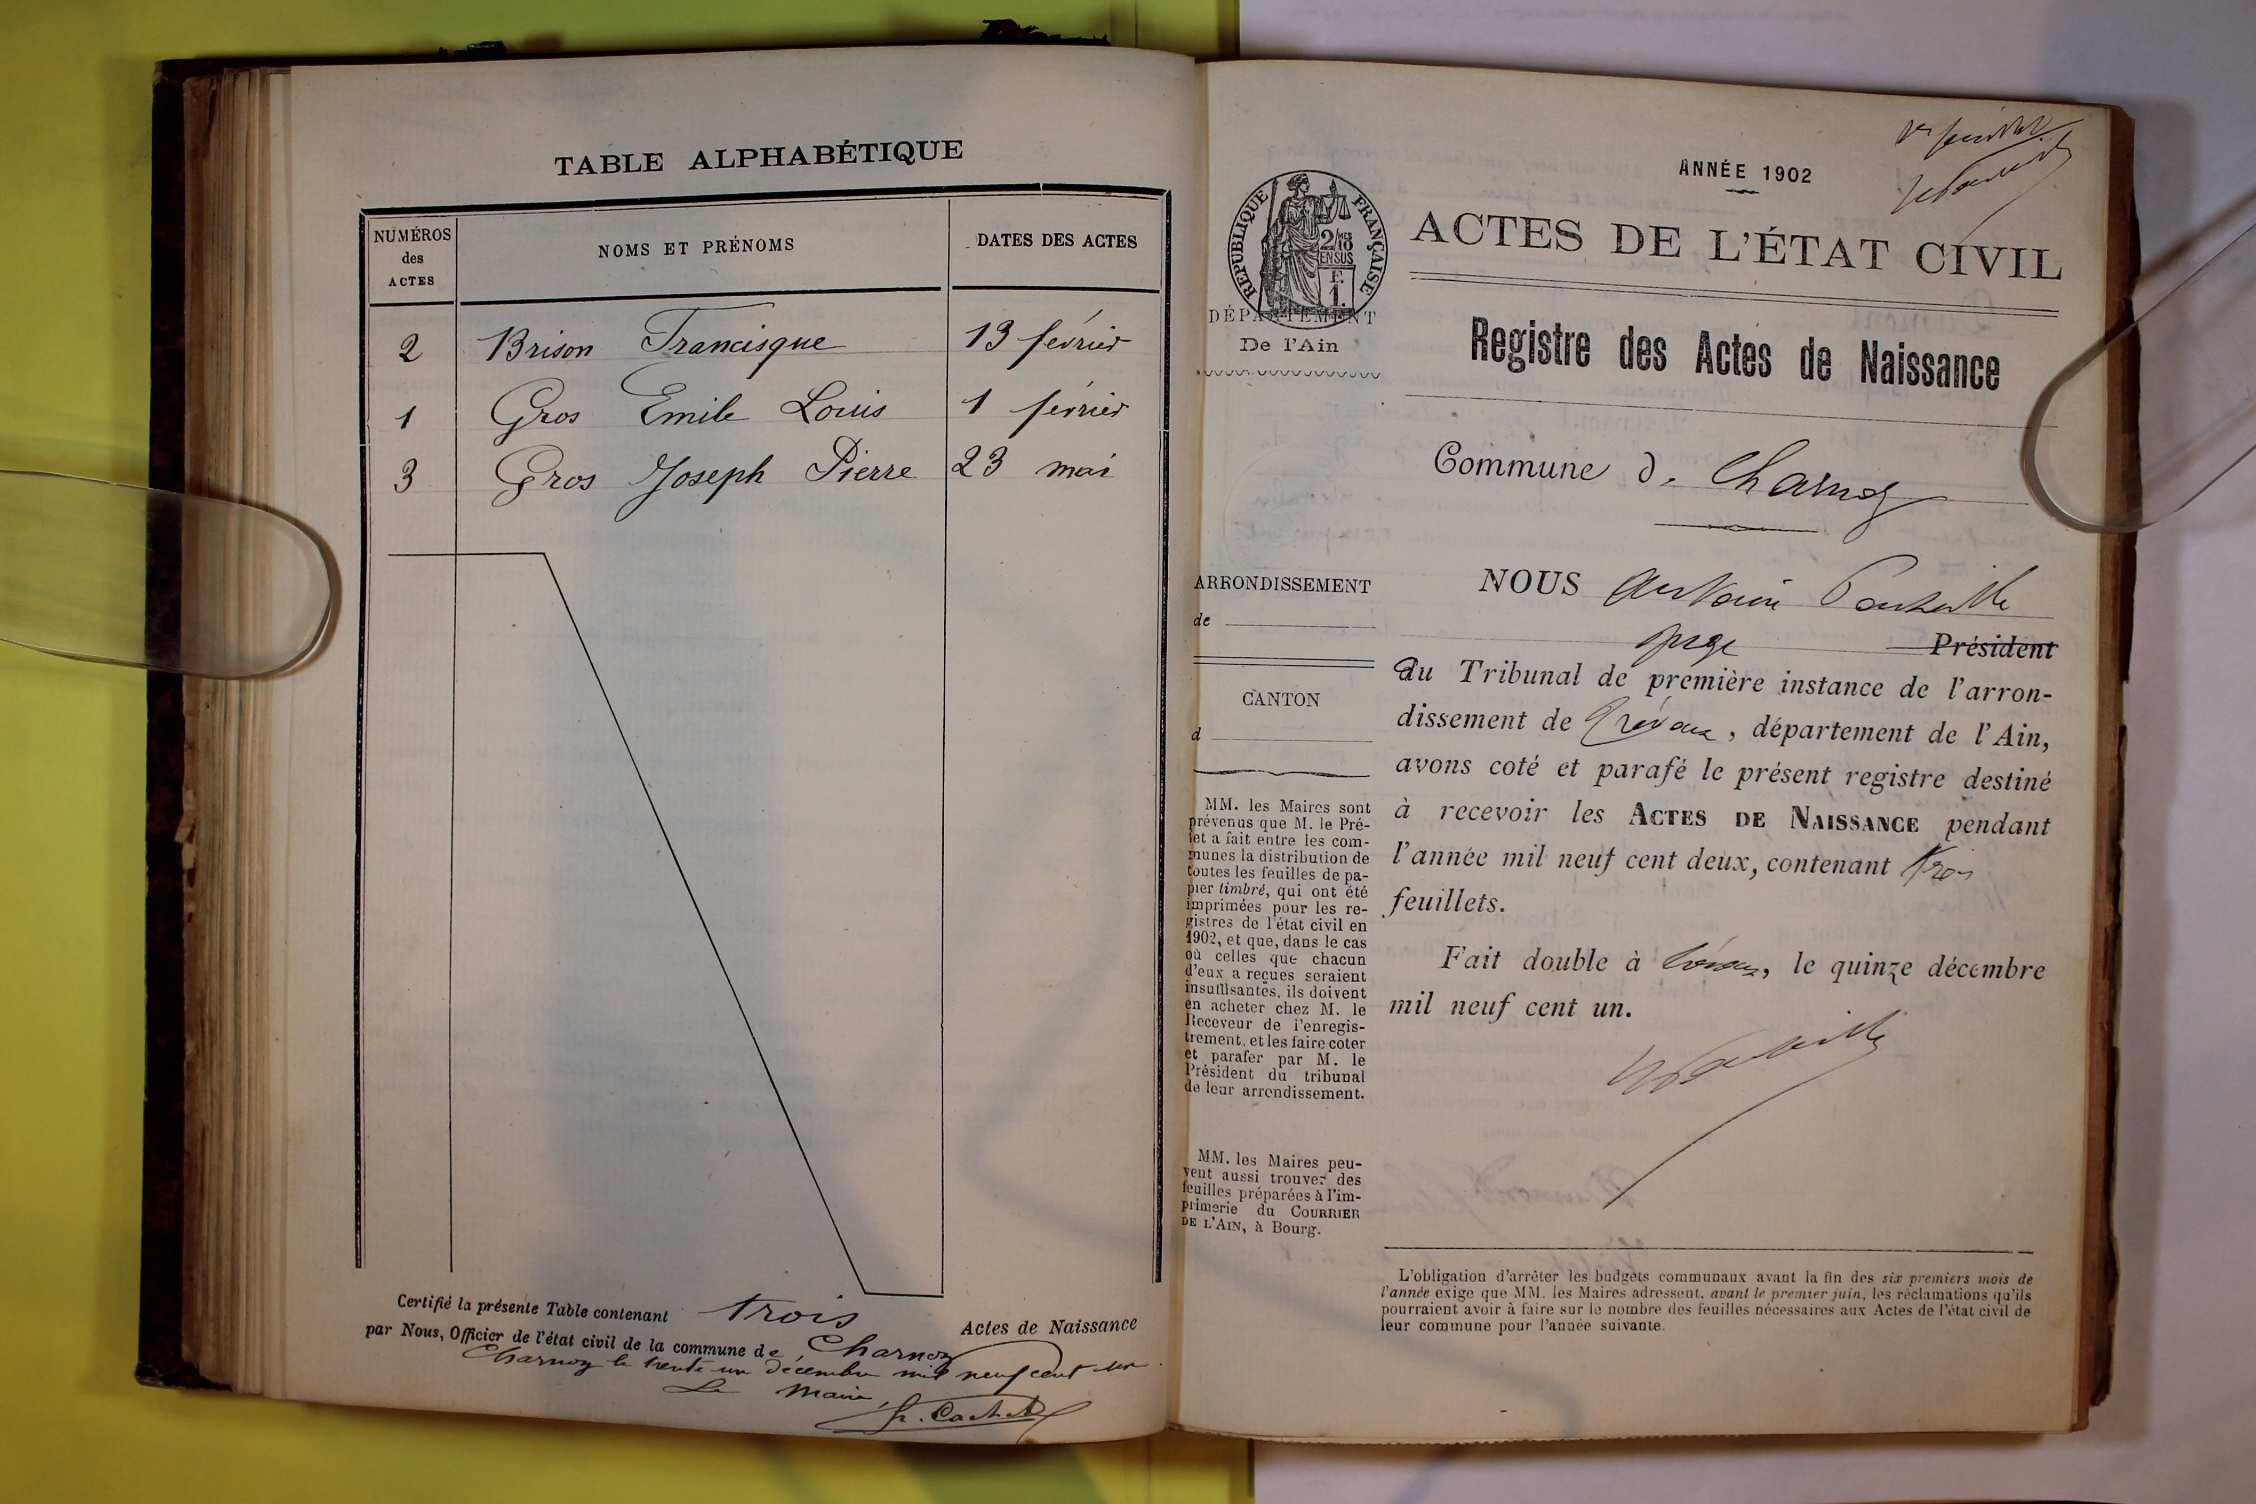 TABLE ALPHABÉTIQUE
NUMÉROS
des
ACTES
NOMS ET PRÉNOMS
DATES DES ACTES
2 Brison Francisque 13 février
1 Gros Emile Louis 1 février
3 Gros Joseph Pierre 23 mai
Certifié la présente Table contenant trois Actes de Naissance
par Nous, Officier de l'état civil de la commune de Charnoz
Charnoz le trente-un décembre mil neuf cent un.
Le Maire,
ANNÉE 1902
RÉPUBLIQUE FRANÇAISE
2/10
EN SUS
F.
1.
ACTES DE L'ÉTAT CIVIL
DÉPARTEMENT
De l'Ain
Registre des Actes de Naissance
Commune d. Charnoz
ARRONDISSEMENT
de
CANTON
d
MM. les Maires sont
prévenus que M. le Pré-
fet a fait entre les com-
munes la distribution de
toutes les feuilles de pa-
pier timbré, qui ont été
imprimées pour les re-
gistres de l'état civil en
1902, et que, dans le cas
où celles que chacun
d'eux a reçues seraient
insuffisantes, ils doivent
en acheter chez M. le
Receveur de l'enregis-
trement, et les faire coter
et parafer par M. le
Président du tribunal
de leur arrondissement.
MM. les Maires peu-
vent aussi trouver des
feuilles préparées à l'im-
primerie du COURRIER
DE L'AIN, à Bourg.
NOUS Antoine
juge Président
du Tribunal de première instance de l'arron-
dissement de Trévoux, département de l'Ain,
avons coté et parafé le présent registre destiné
à recevoir les ACTES DE NAISSANCE pendant
l'année mil neuf cent deux, contenant trois
feuillets.
Fait double à Trévoux, le quinze décembre
mil neuf cent un.
L'obligation d'arrêter les budgets communaux avant la fin des six premiers mois de
l'année exige que MM. les Maires adressent, avant le premier juin, les réclamations qu'ils
pourraient avoir à faire sur le nombre des feuilles nécessaires aux Actes de l'état civil de
leur commune pour l'année suivante.